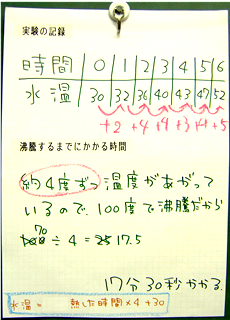 実験の記録
時間 0 1 2 3 4 5 6
水温 30 32 36 40 43 47 52
+2 +4 +4 +3 +4 +5
沸騰するまでにかかる時間
約4度ずつ温度があがって
いるので、100度で沸騰だから
70
÷4=17.5
17分30秒かかる
水温= 熱した時間×4+30